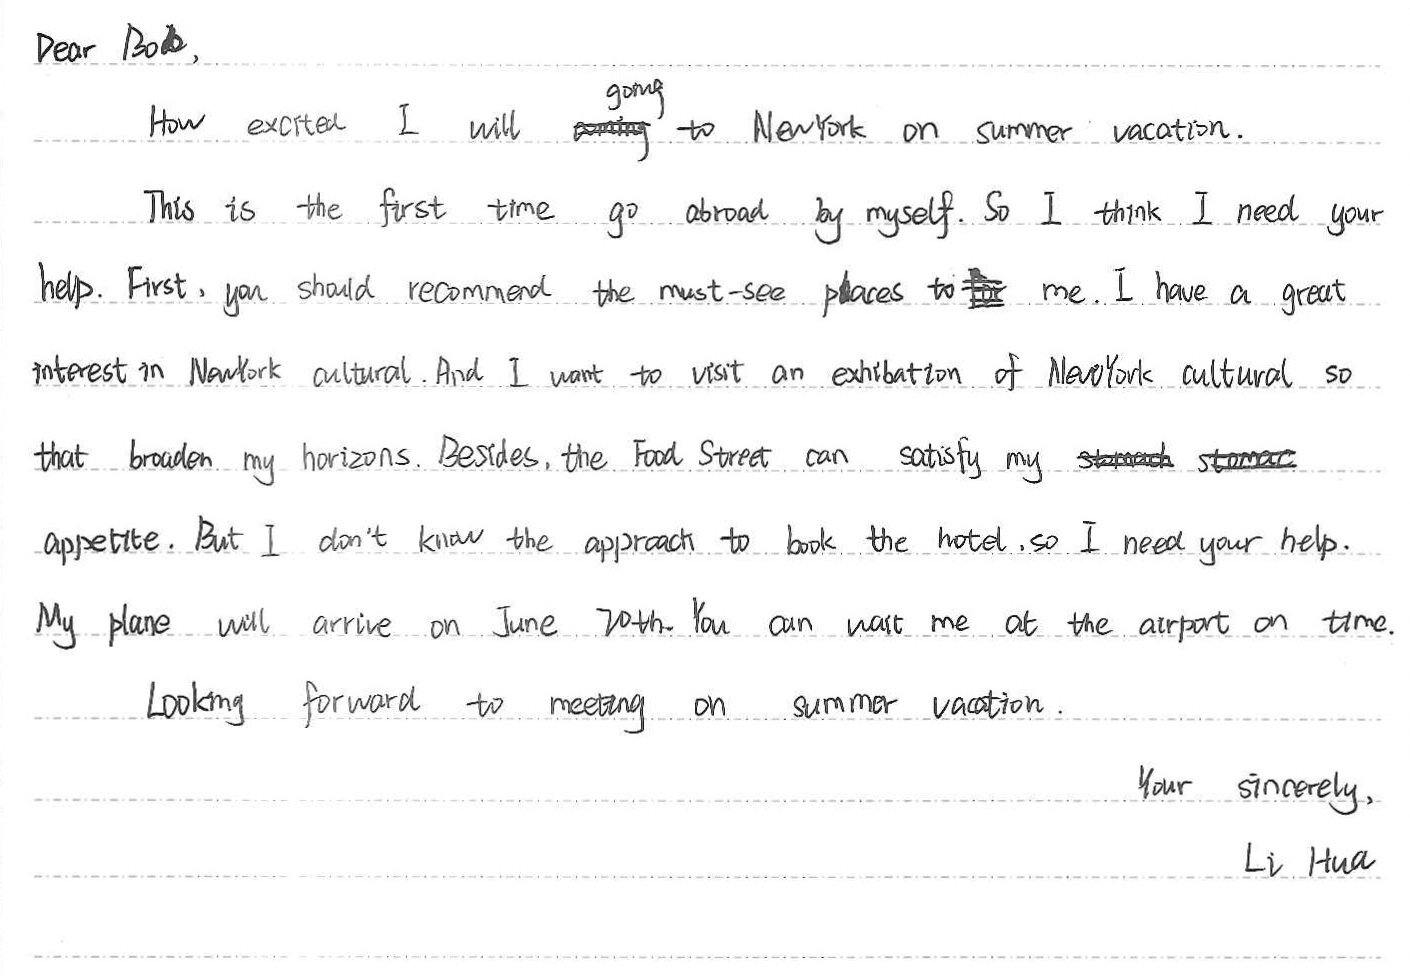 Dear Bob,
How excited I will going to NewYork on summer vacation.
This is the first time go abroad by myself. So I think I need your
help. First, you should recommend the must-see places to me. I have a great
interest in NewYork cultural. And I want to visit an exhibation of NewYork cultural so
that broaden my horizons. Besides, the Food Street can satisfy my
appetite. But I don't know the approach to book the hotel, so I need your help.
My plane will arrive on June 20th. You can wait me at the airport on time.
Looking forward to meeting on summer vacation.
Your sincerely,
Li Hua